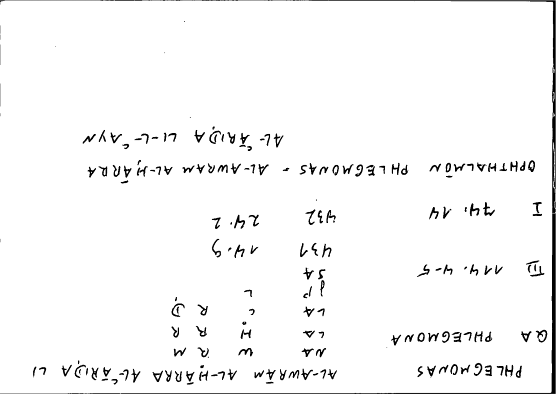 PHLEGMONAS AL-AWRĀM AL-ḤĀRRA AL-ʿĀRIḌA LI
NA W R M
QA PHLEGMONA LA Ḥ R R
LA ʿ R Ḍ
JP L
SA
III 114.4-5
431 14.9
I 74.14 432 24.2
OPHTHALMŌN PHLEGMONAS = AL-AWRAM AL-ḤĀRRA
AL-ʿĀRIḌA LI-L-ʿAYN